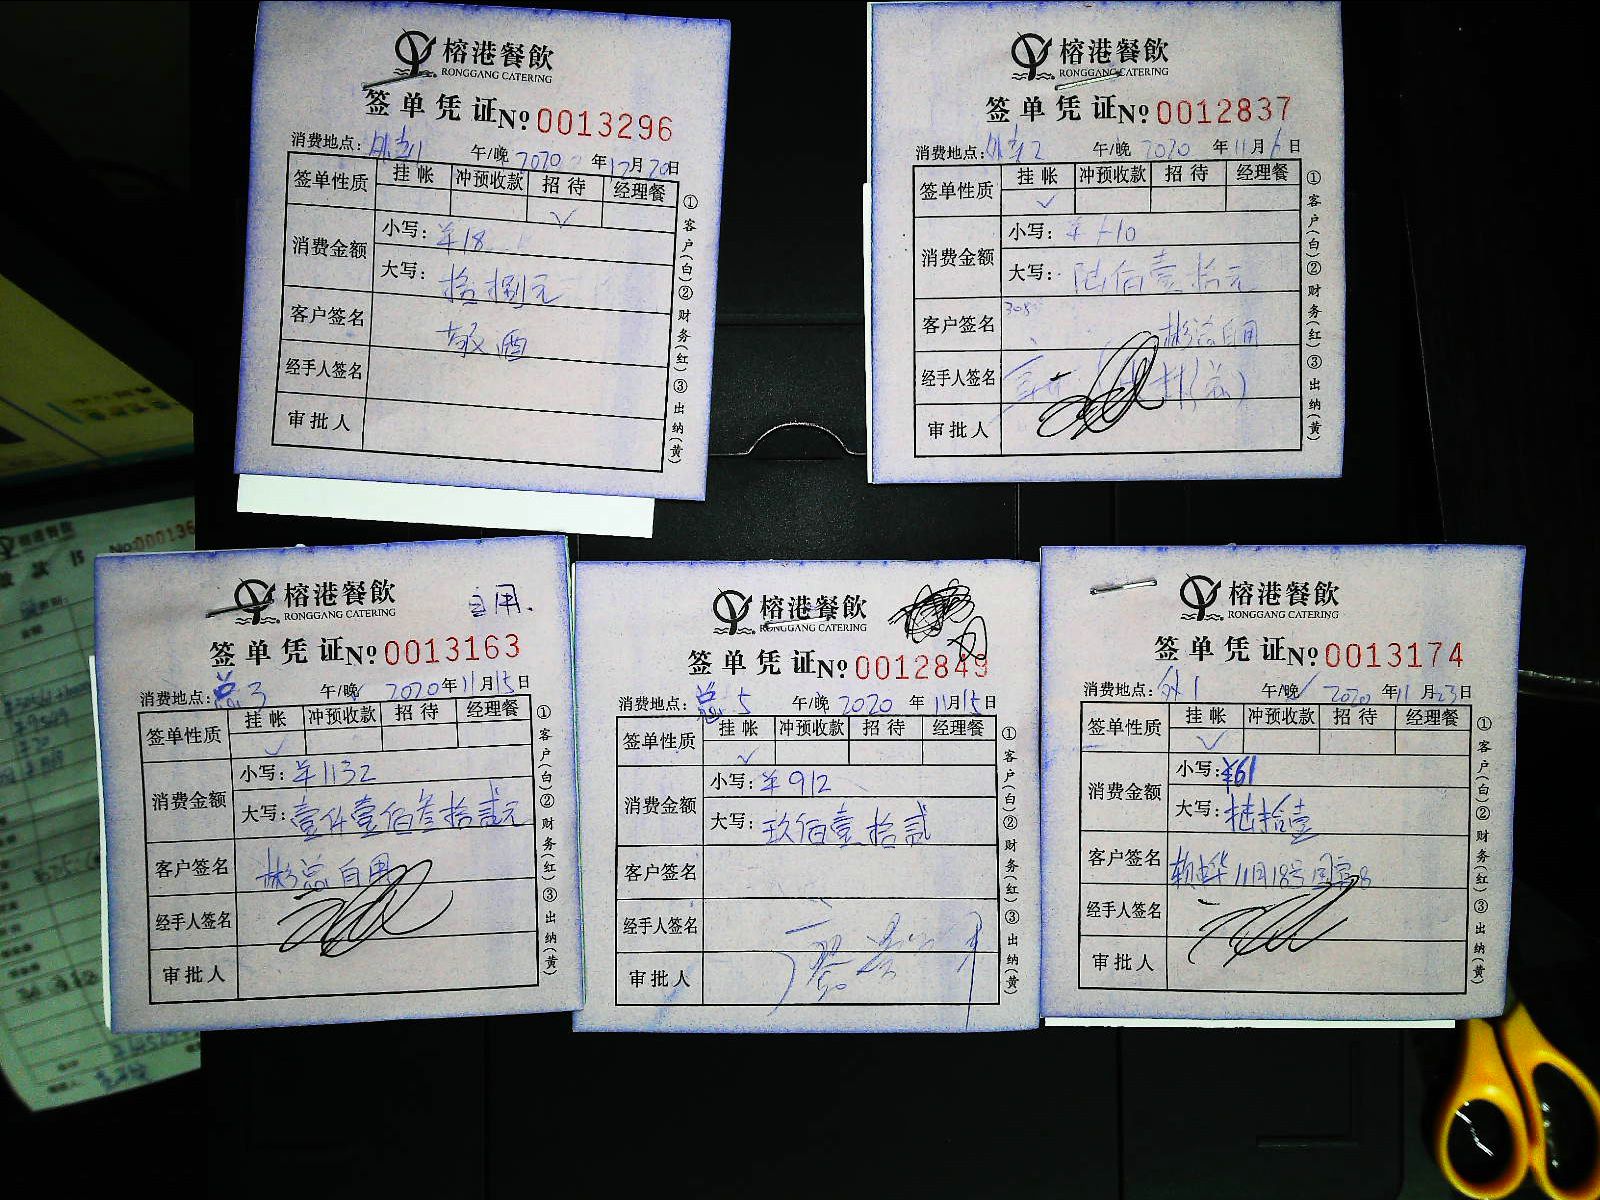 榕港餐飲
RONGGANG CATERING
签单凭证 No 0013296
消费地点: 外1 午/晚 2020年12月20日
签单性质 挂帐 冲预收款 招待 经理餐
✓
消费金额 小写: ¥18
大写: 拾捌元
客户签名 敬酒
经手人签名
审批人
①客户(白)②财务(红)③出纳(黄)
榕港餐飲
RONGGANG CATERING
签单凭证 No 0012837
消费地点: 外2 午/晚 2020年11月6日
签单性质 挂帐 冲预收款 招待 经理餐
✓
消费金额 小写: ¥610
大写: 陆佰壹拾元
客户签名 308 彬总自用
经手人签名
审批人
①客户(白)②财务(红)③出纳(黄)
榕港餐飲
自用.
RONGGANG CATERING
签单凭证 No 0013163
消费地点: 总3 午/晚 ✓ 2020年11月15日
签单性质 挂帐 冲预收款 招待 经理餐
✓
消费金额 小写: ¥1132
大写: 壹仟壹佰叁拾贰元
客户签名 彬总自用
经手人签名
审批人
①客户(白)②财务(红)③出纳(黄)
榕港餐飲
RONGGANG CATERING
签单凭证 No 0012849
消费地点: 总5 午/晚 2020年11月15日
签单性质 挂帐 冲预收款 招待 经理餐
✓
消费金额 小写: ¥912
大写: 玖佰壹拾贰
客户签名
经手人签名
审批人
①客户(白)②财务(红)③出纳(黄)
榕港餐飲
RONGGANG CATERING
签单凭证 No 0013174
消费地点: 外1 午/晚 ✓ 2020年11月23日
签单性质 挂帐 冲预收款 招待 经理餐
✓
消费金额 小写: ¥61
大写: 陆拾壹
客户签名 11月18号
经手人签名
审批人
①客户(白)②财务(红)③出纳(黄)